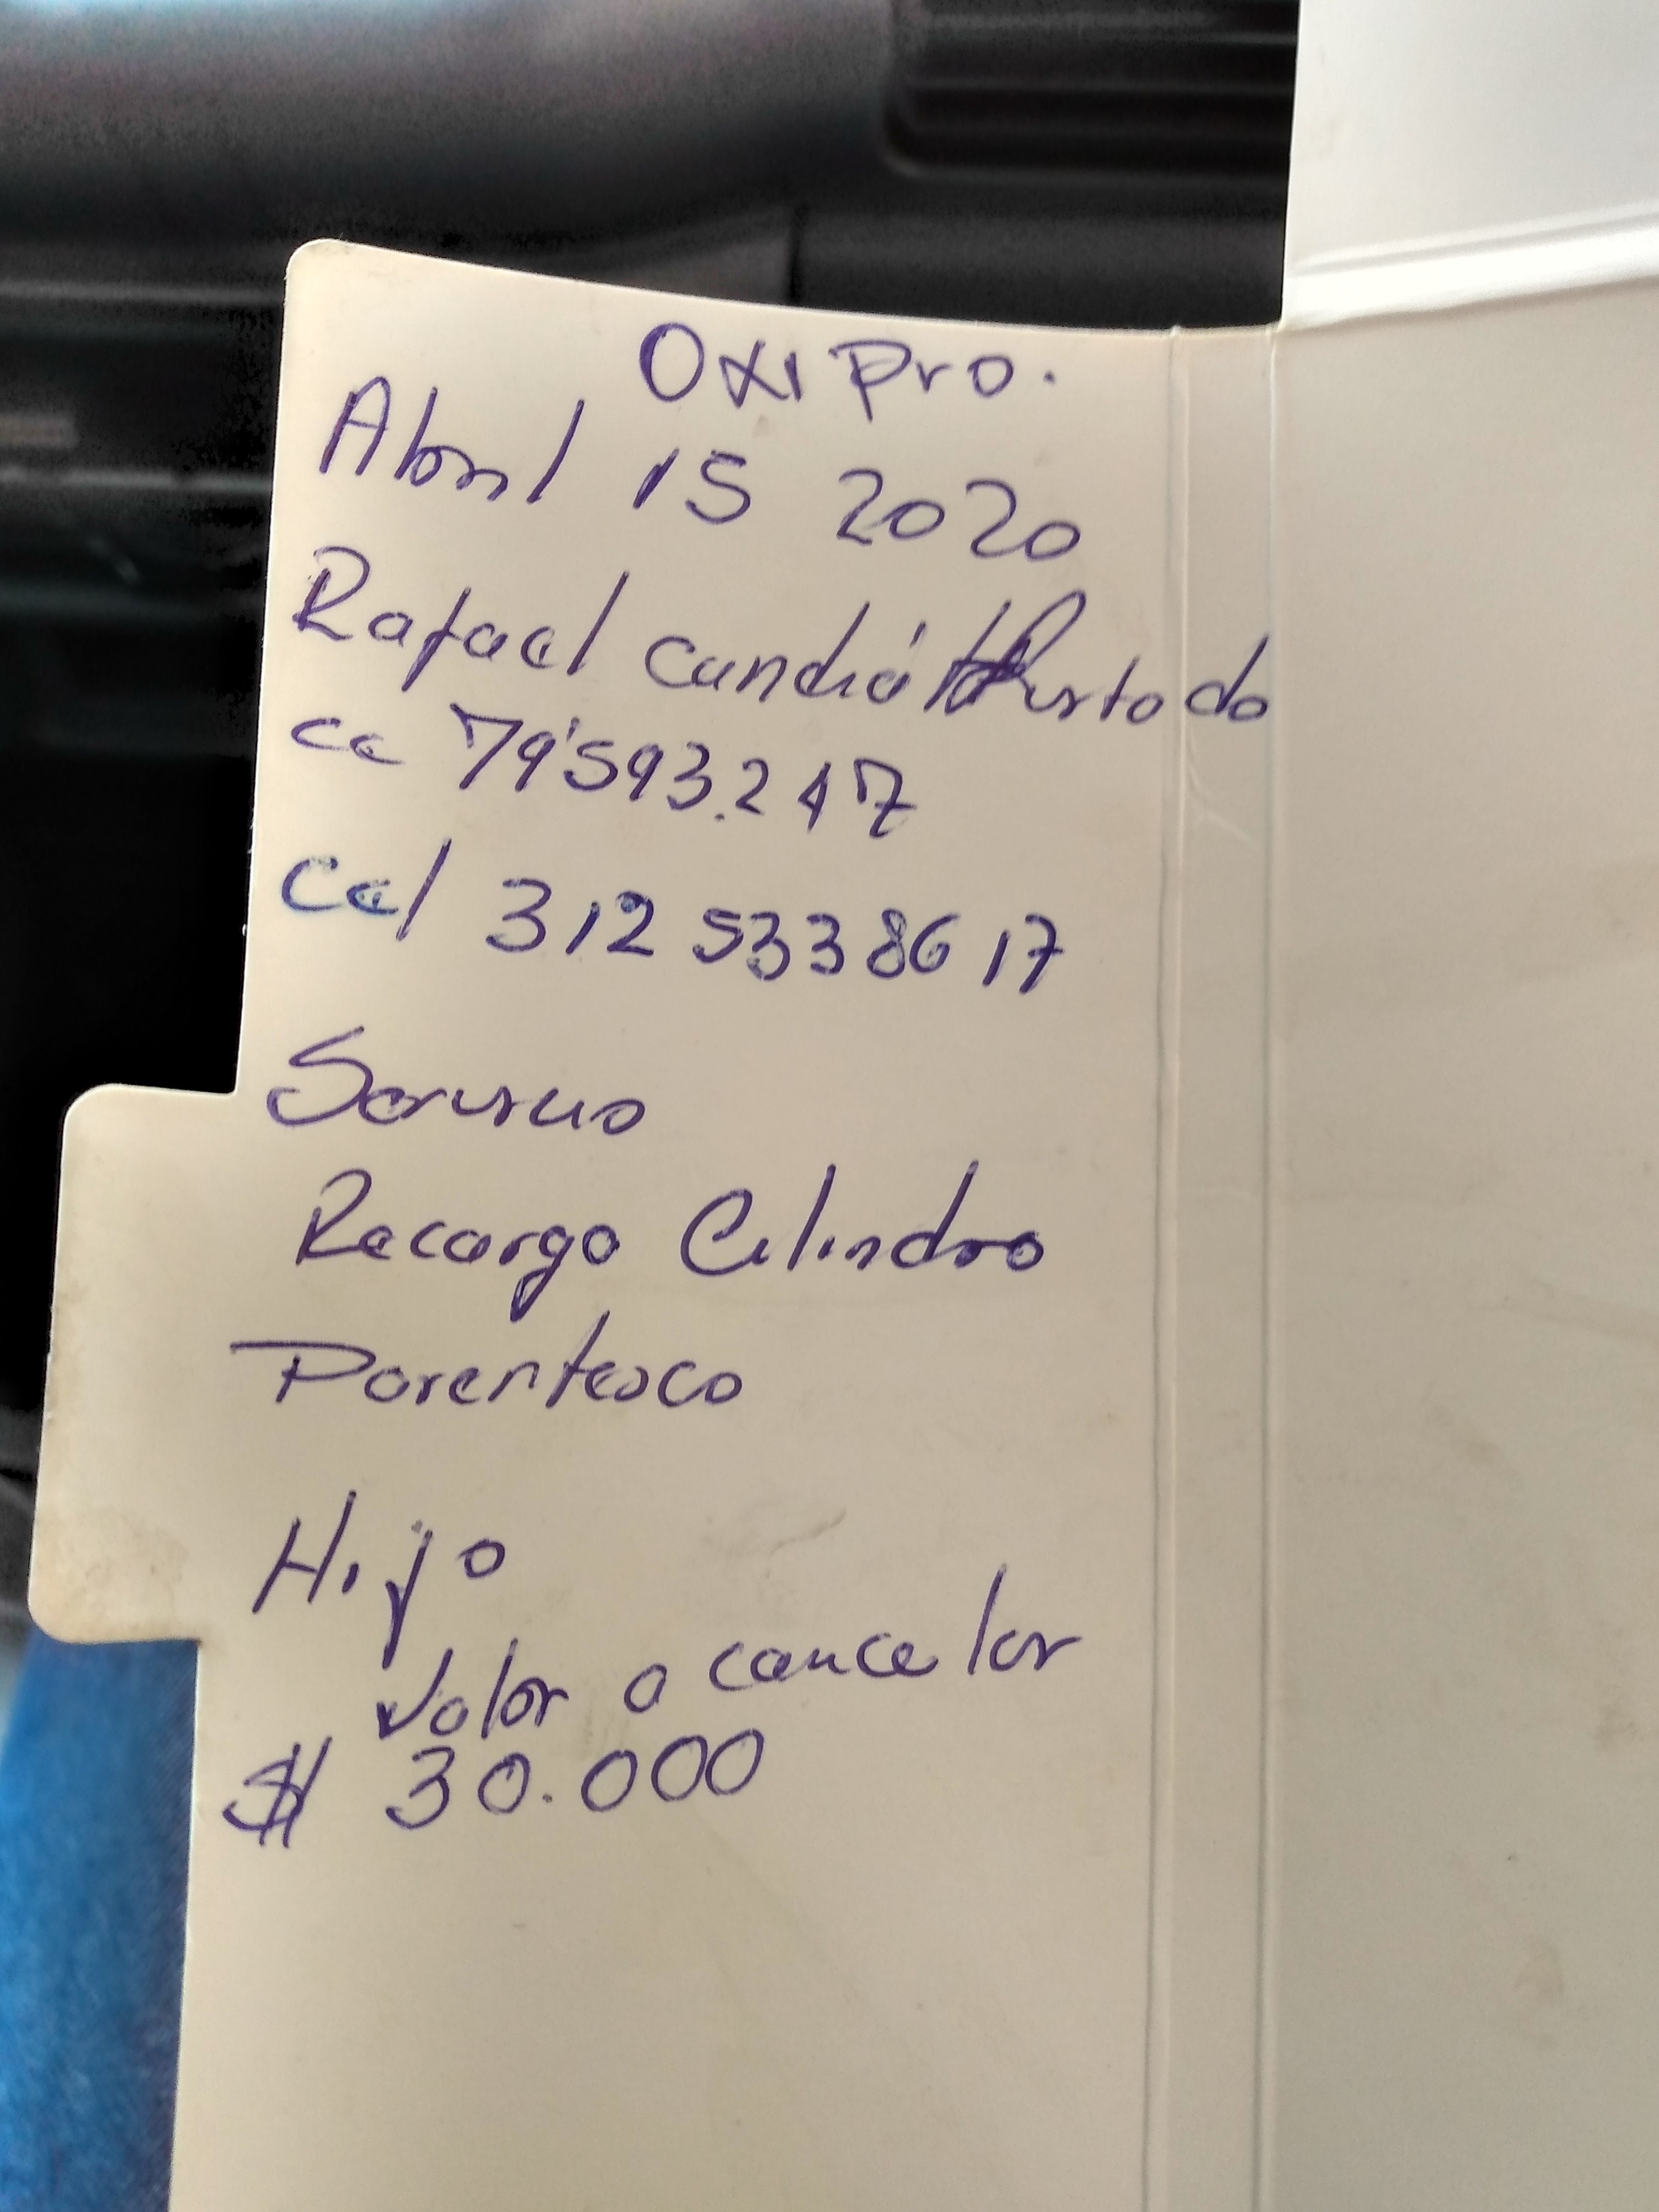 Oxi Pro.
Abril 15 2020
Rafael cundió Hurtado
cc 79'593.247
Cel 312 5338617
Servicio
Recarga Cilindro
Parentesco
Hijo
Valor a cancelar
$ 30.000